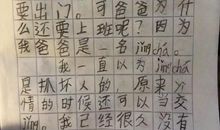 要出门。可爸爸为什
么还要上班呢？因为
我爸爸是一名jǐng chá
我一直以为jǐng chá
是抓坏人的，原来
情的时候还可以当交
jǐng。我已经很久没有